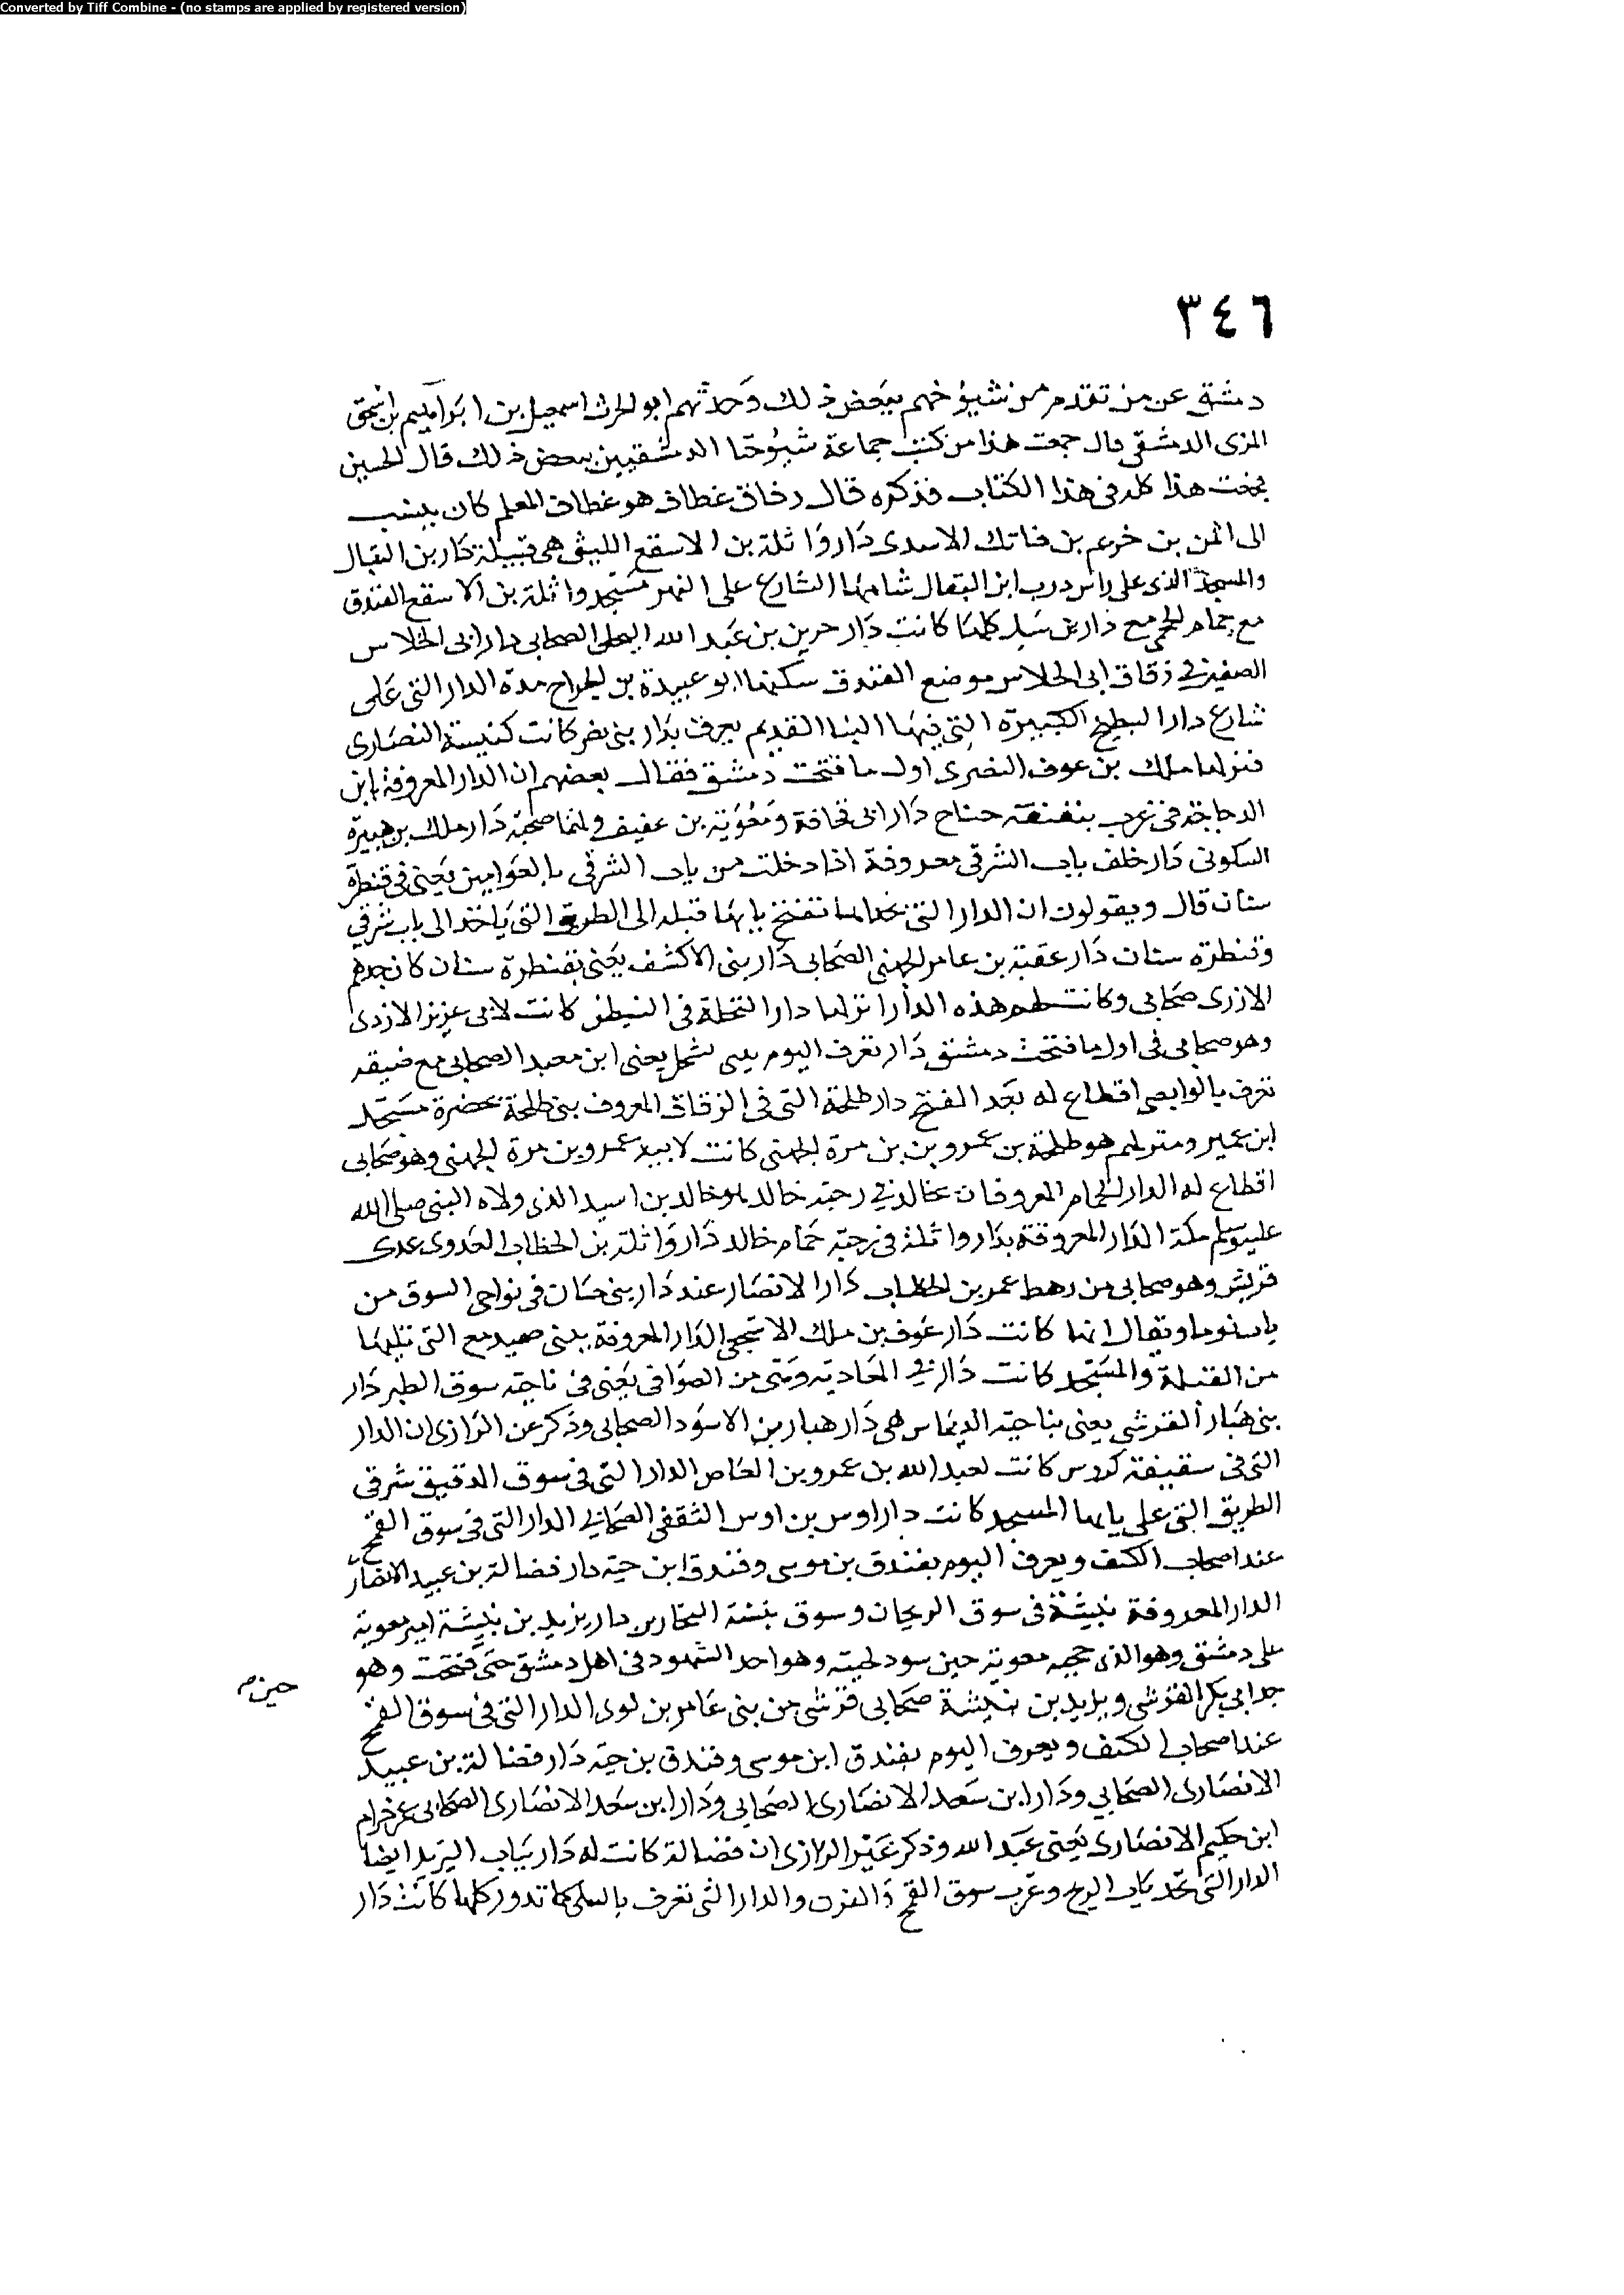 Converted by Tiff Combine - (no stamps are applied by registered version)
٣٤٦
دمشق عن من تقدم من شيوخهم ببعض ذلك وحدثهم ابو الحرث اسمعيل بن ابراهيم بن اسحق
المزى الدمشقى قال جمعت هذا من كتب جماعة شيوخنا الدمشقيين ببعض ذلك قال الحسين
جمعت هذا كله فى هذا الكتاب فذكره قال زقاق غطاف هو غطاف المعلم كان ينسب
الى ايمن بن خريم بن فاتك الاسدى دار واثلة بن الاسقع الليثى هى قبيلة دار بن البقال
والمسجد الذى على راس درب ابن البقال شاميها الشارع على النهر مسجد واثلة بن الاسقع الفندق
مع حمام الجمحى مع دار بن كلها كانت دار جرير بن عبد الله البجلى الصحابى دار ابى الجلاس
الصغيرة فى زقاق ابى الجلاس موضع الفندق سكنها ابو عبيدة بن الجراح مدة الدار التى على
شارع دار البطيخ الكبيرة التى فيها البنا القديم يعرف بدار بنى نصر كانت كنيسة النصارى
فنزلها ملك بن عوف النصرى اول ما فتحت دمشق فقال بعضهم ان الدار المعروفة بابن
الدجاجة فى غرب جناح دار ابى قحافة ومعوية بن عفيف ولهما صحبة دار ملك بن هبيرة
السكونى دار خلف باب الشرقى معروفة اذا دخلت من باب الشرقى يعنى فى قنطرة
سنان قال ويقولون ان الدار التى بحذاها تفتح بابها قبلة الى الطريق التى ياخذ الى باب شرقي
وقنطرة سنان دار عقبة بن عامر الجهنى الصحابى دار بنى الاكشف يعنى بقنطرة سنان كان جدهم
الازرى صحابى وكانت لهم هذه الدار نزلها دار النخلة فى النيطن كانت لابى عزيز الازدى
وهو صحابى فى اول ما فتحت دمشق دار تعرف اليوم يعنى ابن معبد الصحابى مع ضيقه
تعرف بالوابصى اقطاع له بعد الفتح دار طلحة التى فى الزقاق المعروف ببنى طلحة بحضرة مسجد
ابن عمير ومنزلهم هو طلحة بن عمرو بن بن مرة الجهنى كانت لابيه عمرو بن مرة الجهنى وهو صحابى
اقطاع له الدار والحمام المعروفان بخالد فى رحبة خالد هو خالد بن اسيد الذى ولاه النبى صلى الله
عليه وسلم مكة الدار المعروفة بدار واثلة فى رحبة حمام خالد دار واثلة بن الخطاب العدوى عدى
قريش وهو صحابى من رهط عمر بن الخطاب دار الانصار عند دار بنى حسان فى نواحى السوق من
باب توما ويقال انها كانت دار عوف بن ملك الاشجعى الدار المعروفة ببنى صهيد مع التى تليها
من القبلة والمسجد كانت دار من الصوافى يعنى فى ناحية سوق الطير دار
بنى هبار القرشى يعنى بناحية الديماس هى دار هبار بن الاسود الصحابى وذكر عن الرازى ان الدار
التى فى سقيفة كردس كانت لعبد الله بن عمرو بن العاص الدار التى فى سوق الدقيق شرقى
الطريق التى على بابها المسجد كانت دار اوس بن اوس الثقفى الصحابى الدار التى فى سوق القمح
عند اصحاب الكتف ويعرف اليوم بفندق بن موسى وفندق ابن حية دار فضالة بن عبيد الانصار
الدار المعروفة بنيشة فى سوق الريحان وسوق دار يزيد بن نبيشة امير معوية
على دمشق وهو الذى حجبه معوية حين سود لحيته وهو احد الشهود فى اهل دمشق حتى فتحت وهو
حين م
جد ابى بكر القرشى ويزيد بن نبيشة صحابى قرشى من بنى عامر بن لوى الدار التى فى سوق القمح
عند اصحاب الكتف ويعرف اليوم بفندق ابن موسى وفندق بن حية دار فضالة بن عبيد
الانصارى الصحابي ودار ابن سعد الانصارى الصحابي ودار ابن سعد الانصارى الصحابى عم حرام
ابن حكيم الانصارى يعنى عبد الله وذكر غير الرازى ان فضالة كانت له دار بباب البريد ايضا
الدار التى عند باب البريد وغرب سوق القمح ذا الفرن والدار التى تعرف بالسلمى كما تدور كلها كانت دار